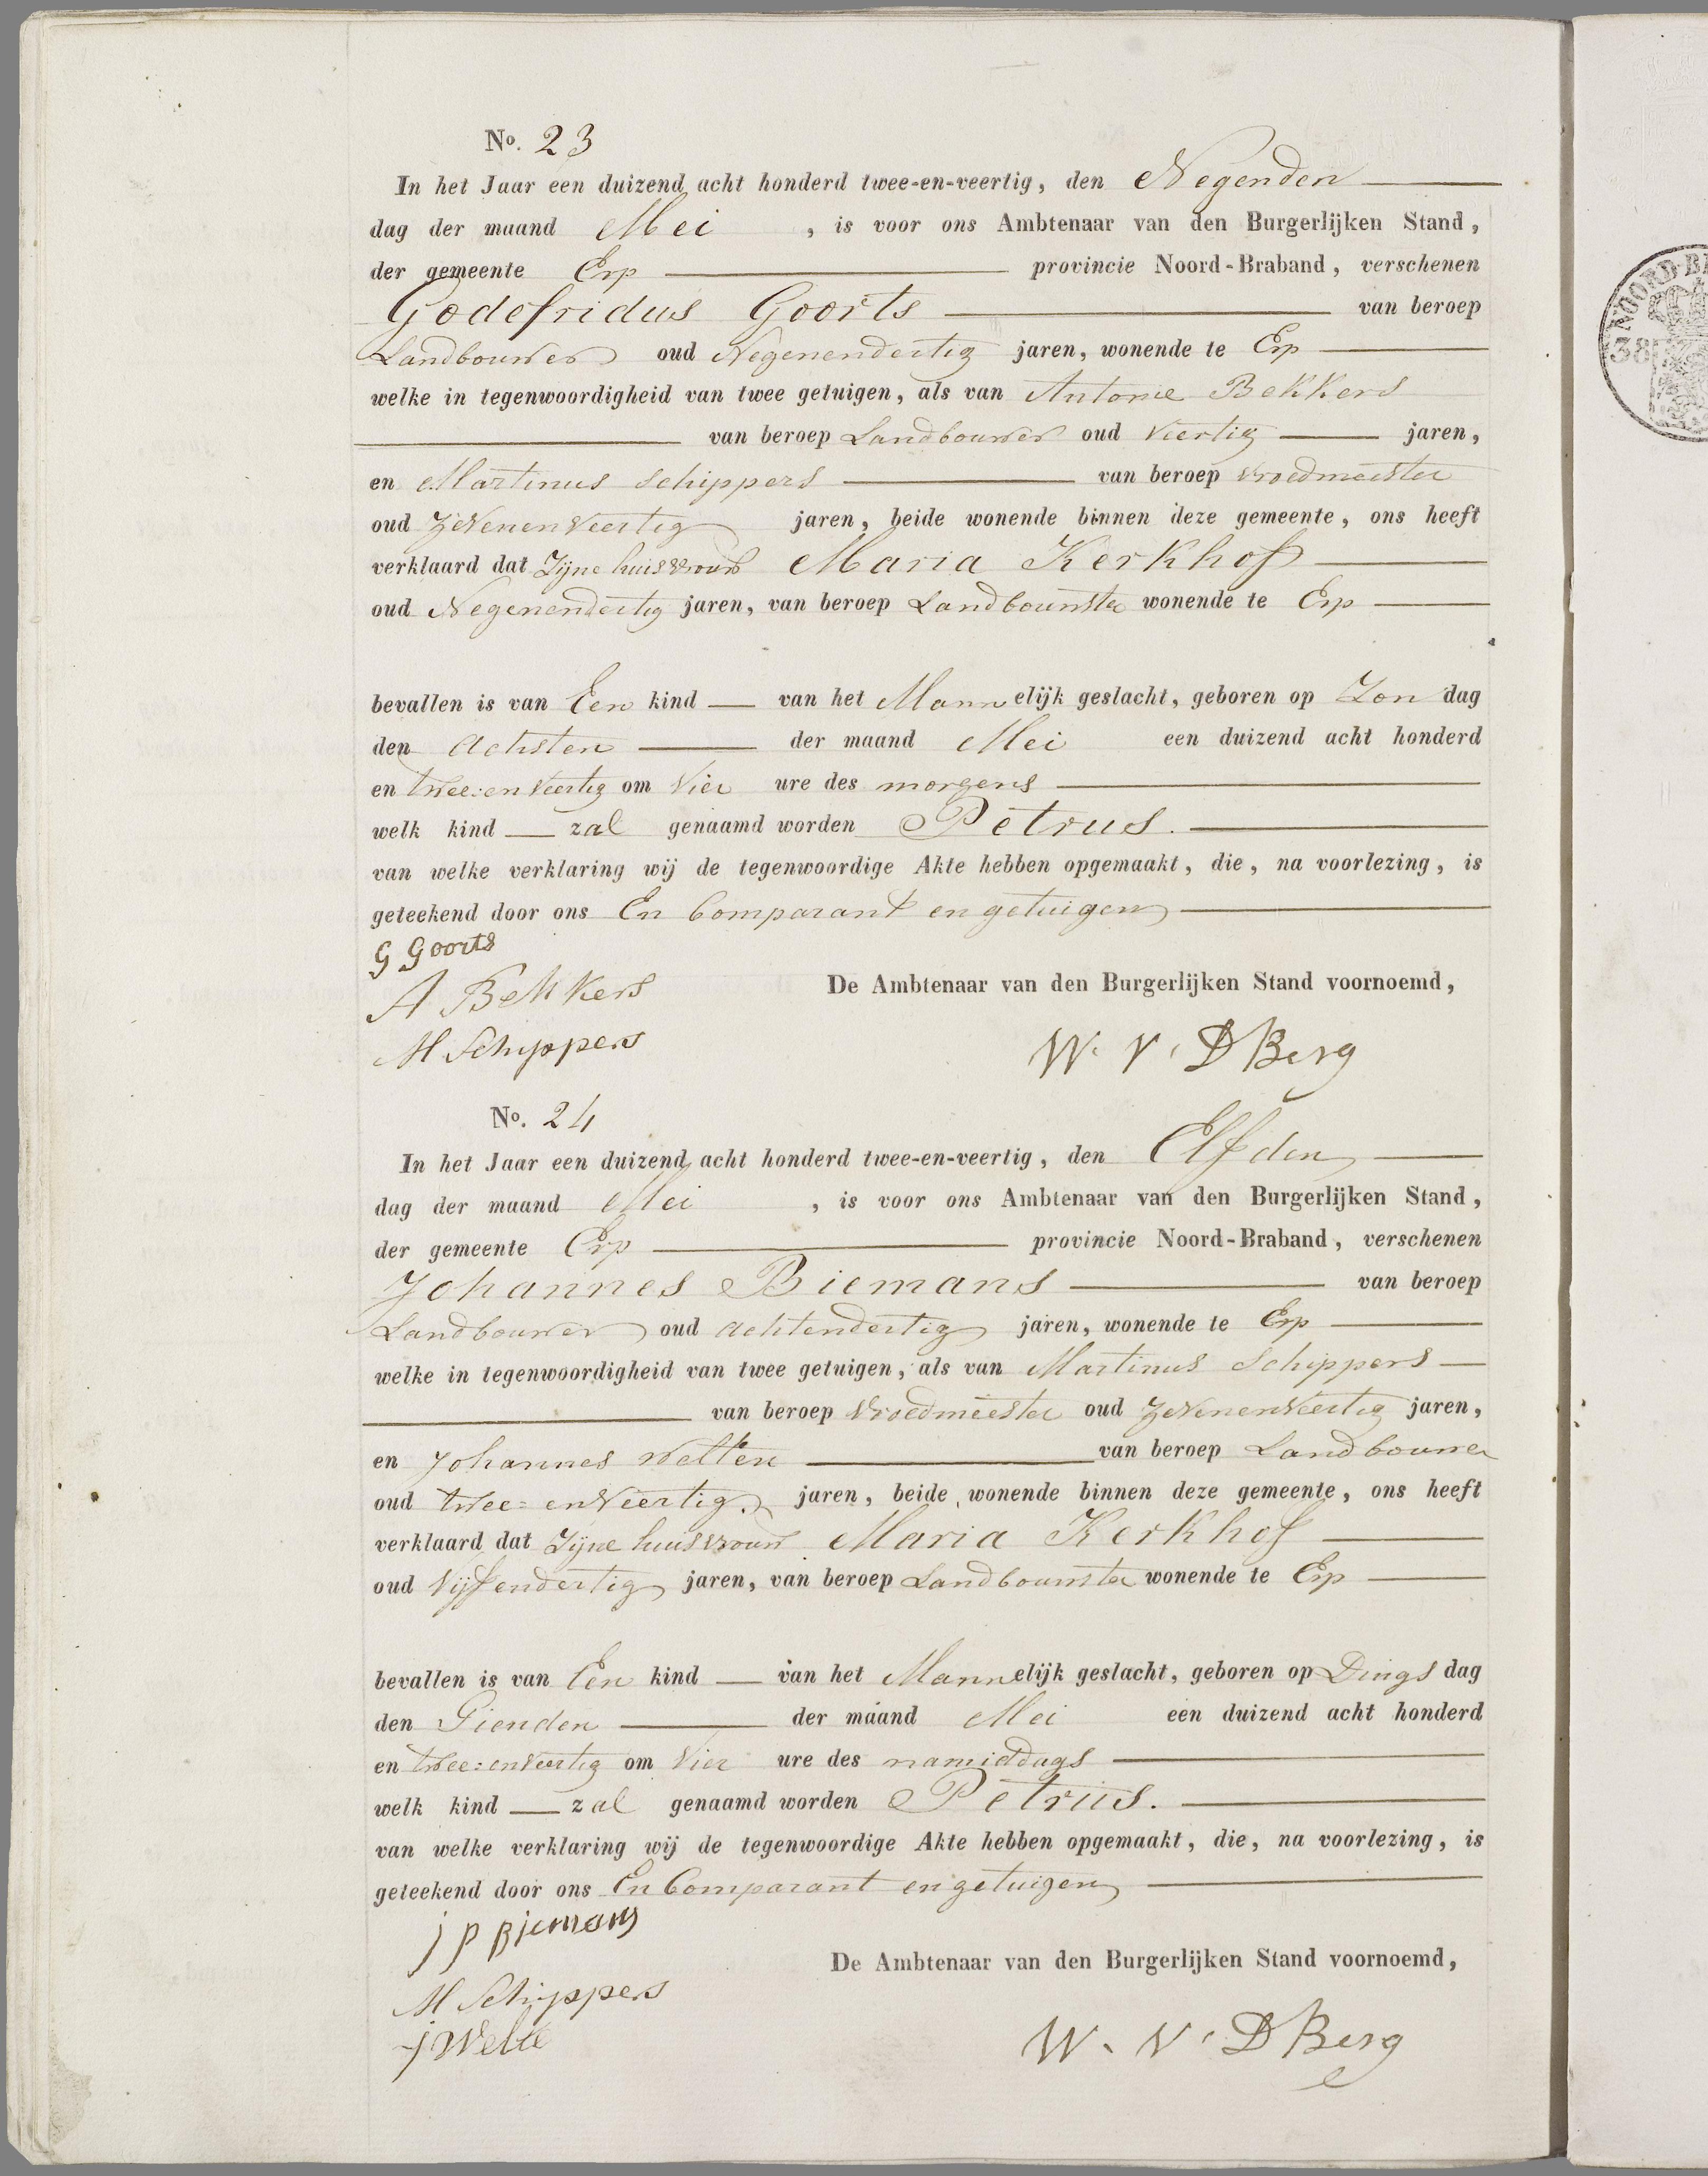 No. 23
In het Jaar een duizend acht honderd twee-en-veertig, den Negenden
dag der maand Mei , is voor ons Ambtenaar van den Burgerlijken Stand,
der gemeente Erp provincie Noord-Braband, verschenen
Godefridus Goorts van beroep
Landbouwer oud Negenendertig jaren, wonende te Erp
welke in tegenwoordigheid van twee getuigen, als van Antonie Bekkers
van beroep Landbouwer oud Veertig jaren,
en Martinus Schippers van beroep Vroedmeester
oud Zevenenveertig jaren, beide wonende binnen deze gemeente, ons heeft
verklaard dat Zijne huisvrouw Maria Kerkhof
oud Negenendertig jaren, van beroep Landbouwster wonende te Erp
bevallen is van Een kind van het Mannelijk geslacht, geboren op Zondag
den Achsten der maand Mei een duizend acht honderd
en twee:en Veertig om Vier ure des morgens
welk kind zal genaamd worden Petrus.
van welke verklaring wij de tegenwoordige Akte hebben opgemaakt, die, na voorlezing, is
geteekend door ons En Comparant en getuigen
G Goorts
A Bekkers
De Ambtenaar van den Burgerlijken Stand voornoemd,
M Schippers
W. V. D Berg
No. 24
In het Jaar een duizend acht honderd twee-en-veertig, den Elfden
dag der maand Mei , is voor ons Ambtenaar van den Burgerlijken Stand,
der gemeente Erp provincie Noord-Braband, verschenen
Johannes Biemans van beroep
Landbouwer oud achtendertig jaren, wonende te Erp
welke in tegenwoordigheid van twee getuigen, als van Martinus Schippers
van beroep Vroedmeester oud Zevenenveertig jaren,
en Johannes Welten van beroep Landbouwer
oud twee=enVeertig. jaren, beide wonende binnen deze gemeente, ons heeft
verklaard dat Zijne huisvrouw Maria Kerkhof
oud Vijfendertig jaren, van beroep Landbouwster wonende te Erp
bevallen is van Een kind van het Mannelijk geslacht, geboren op Dingsdag
den Tienden der maand Mei een duizend acht honderd
en twee:enveertig om Vier ure des namiddags
welk kind zal genaamd worden Petrus.
van welke verklaring wij de tegenwoordige Akte hebben opgemaakt, die, na voorlezing, is
geteekend door ons En Comparant en getuigen
j p Biemans
De Ambtenaar van den Burgerlijken Stand voornoemd,
M Schippers
j Welte
W. V. D Berg
NOORD-B
38